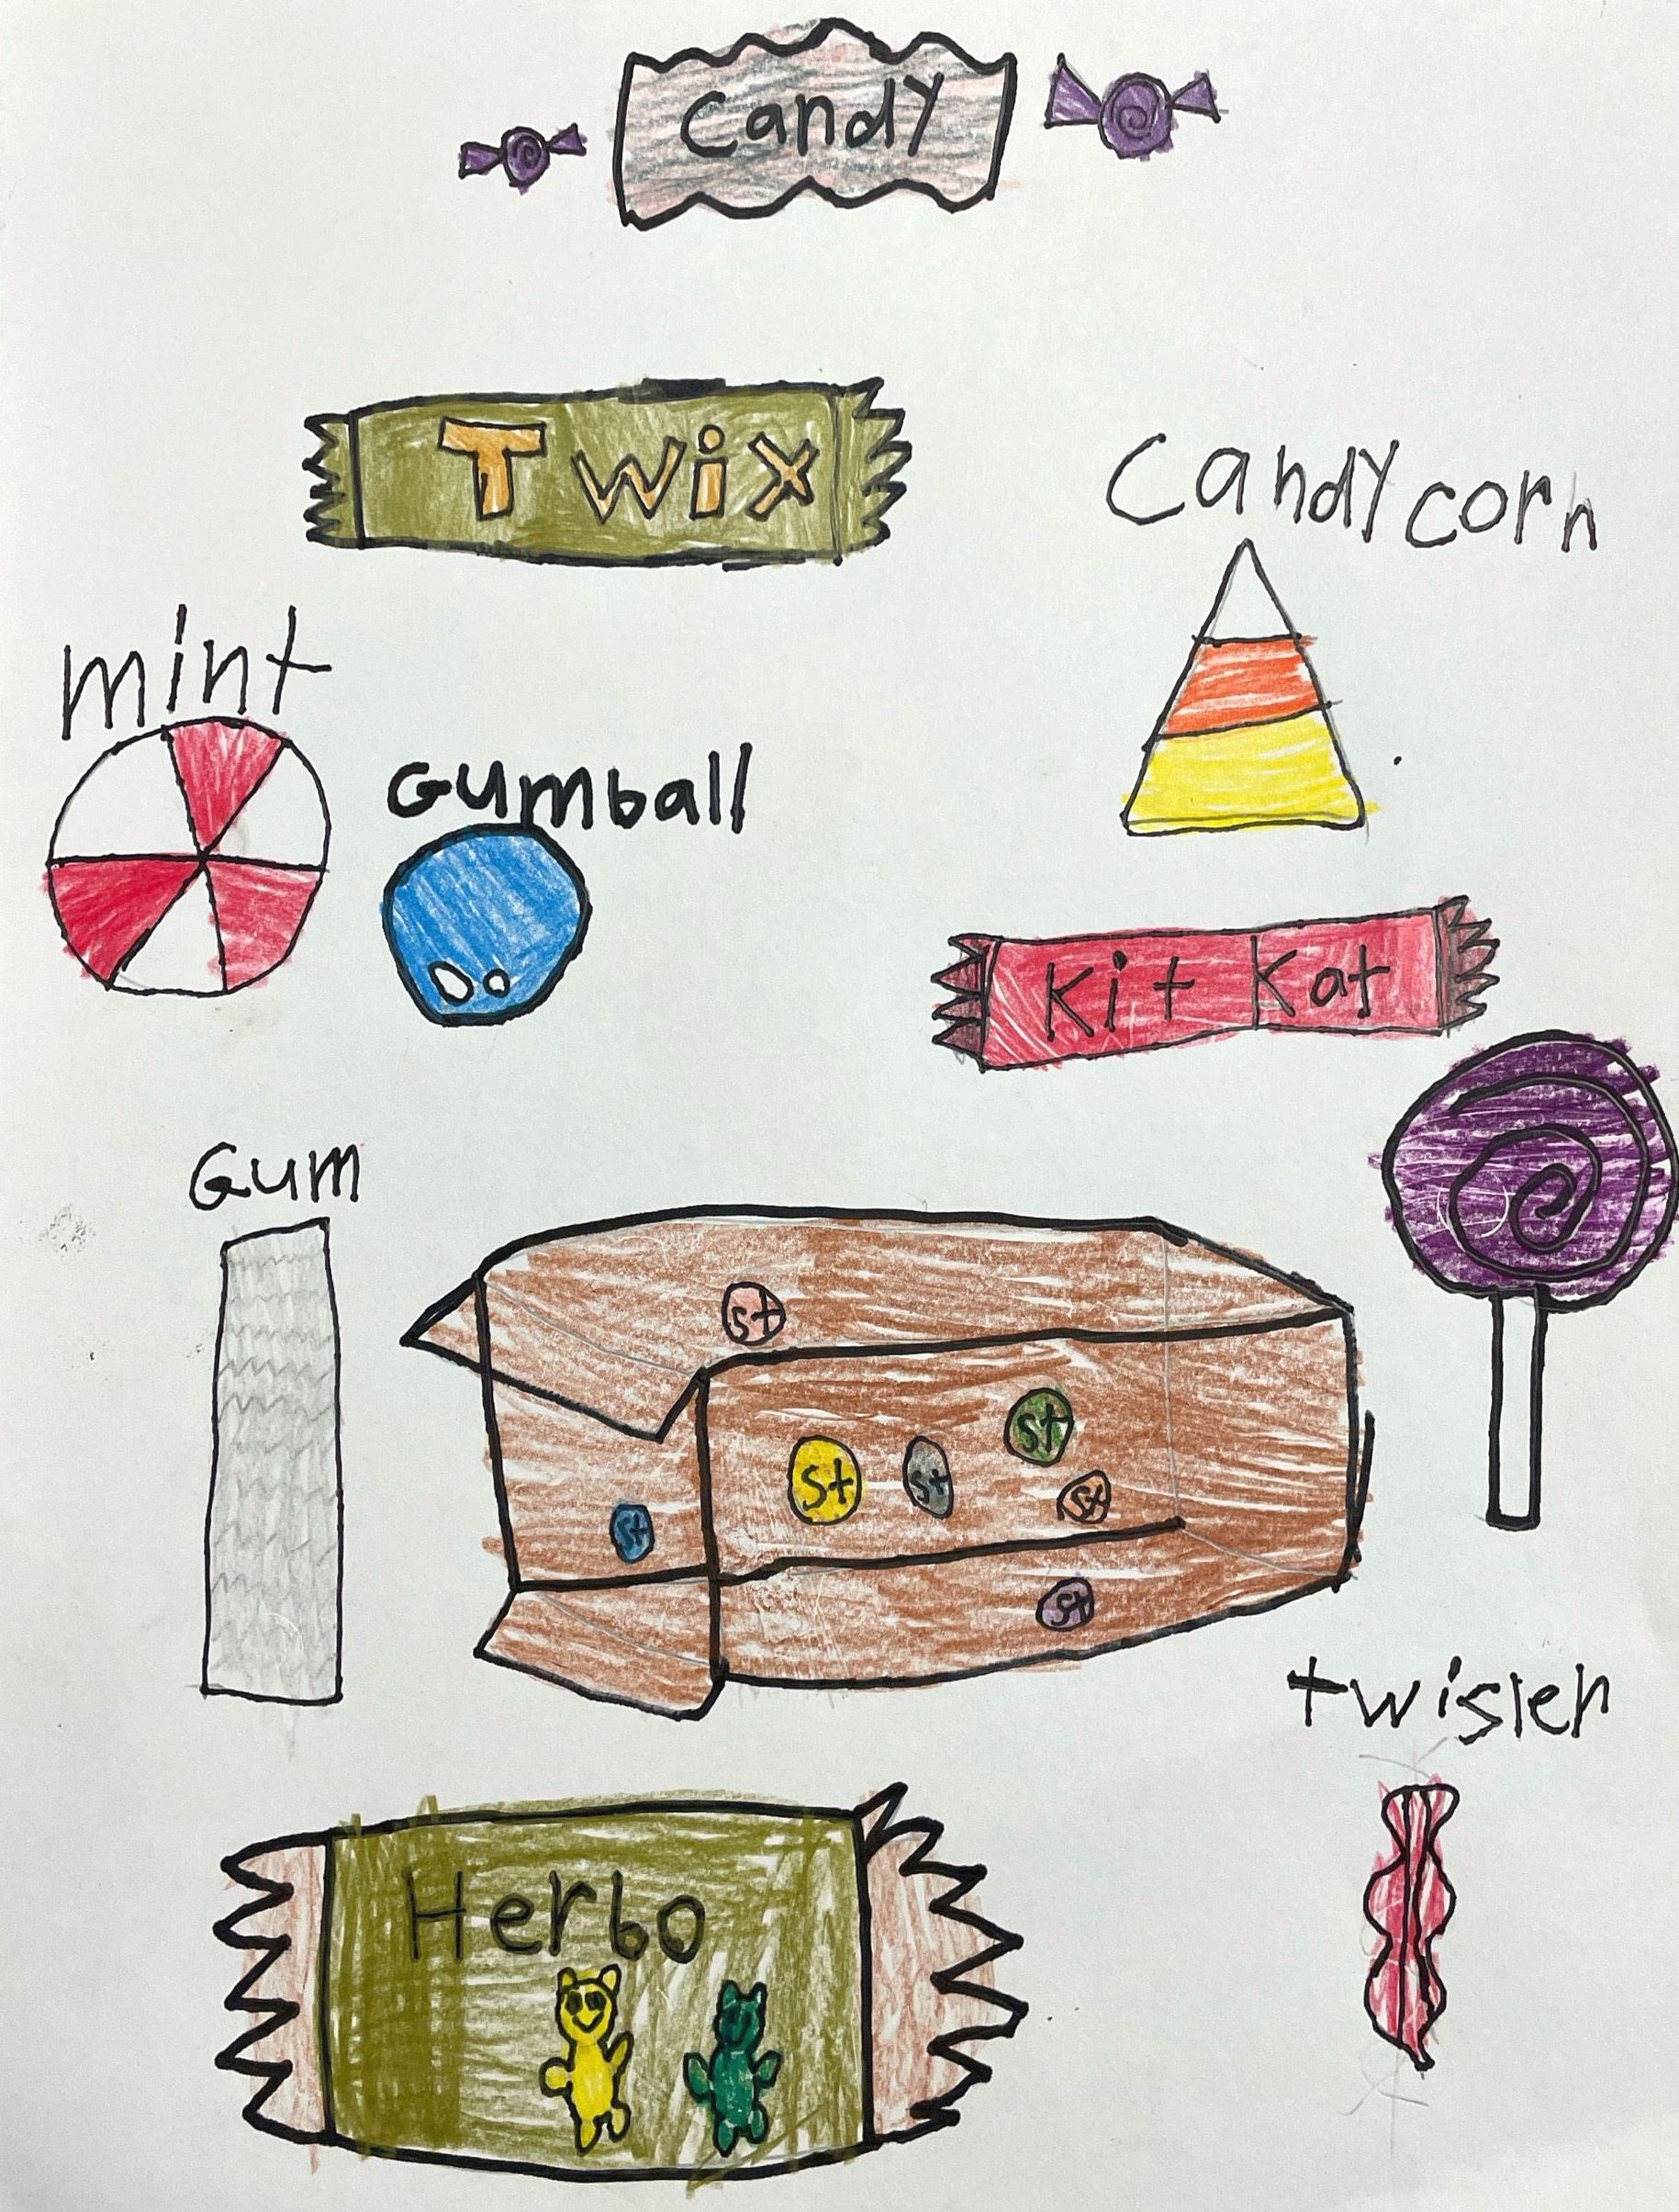 Candy
Twix
Candy corn
mint
Gumball
Kit Kat
Gum
st
st
st
st
st
st
st
twisler
Herbo